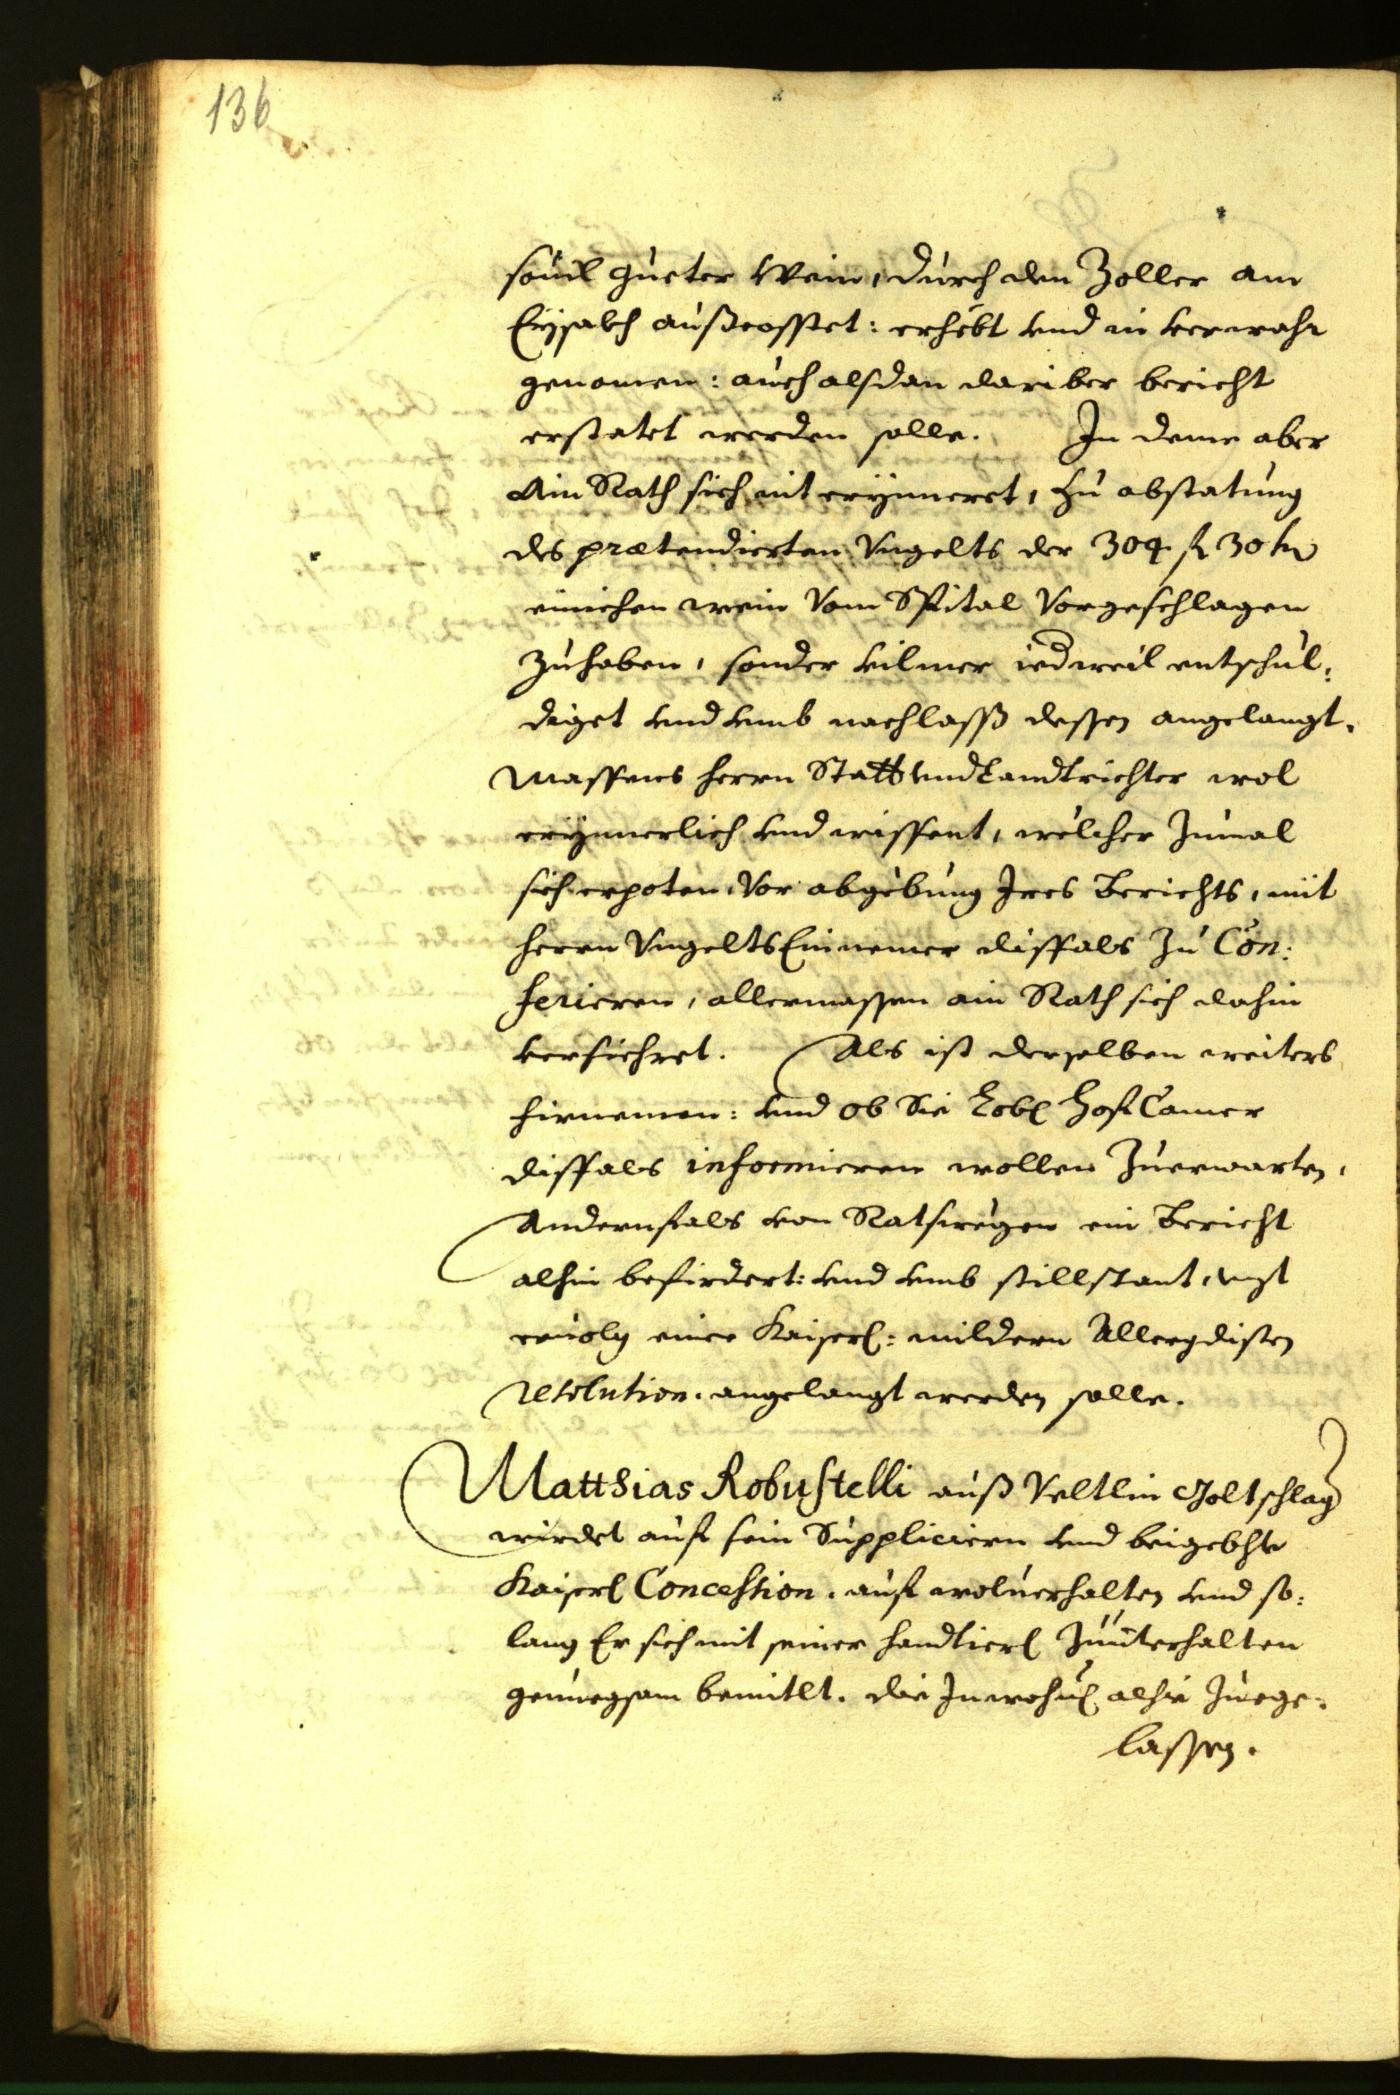 136
souil gueter Wein, durch den Zoller am
Eysakh außcosstet: erhebt vnd in verwahr
genomen: auch alsdan dariber bericht
erstatet werden solle. In deme aber
Ain Rath sich nit erynneret, zu abstatung
des prætendierten Vngelts der 304 f 30 kr
einichen wein vom Spital vorgeschlagen
zuhaben, sonder vilmer iedweil entschul:
diget vnd vmb nachlaß dessen angelangt.
Massens herrn Statt vnd Landtrichter wol
erynnerlich vnd wissent, welcher zumal
sich erpoten, vor abgebung Ires Berichts, mit
herrn Vngelts Einnemer dissfals zu Con:
ferieren, allermassen ain Rath sich dahin
versichret. Als ist derselben weiters
firnemen: vnd ob Sie Lobl Hof Camer
dissfals informieren wollen zuerwarten,
Andernfals von Ratswegen ein Bericht
alhin befirdert: vnd vmb stillstant,
eruolg einer Kaiserl: mildern Allergdisten
resolution. angelangt werden solle.
Matthias Robustelli auß Veltlin Goltschlag
wirdet auf sein Suppliciern vnd beigebchte
Kaiserl Concession. auf wolverhalten vnd so:
lang Er sich mit seiner handtierl zuunterhalten
genuegsam bemitlt. die Inwohnl alhie zuege:
lassen.